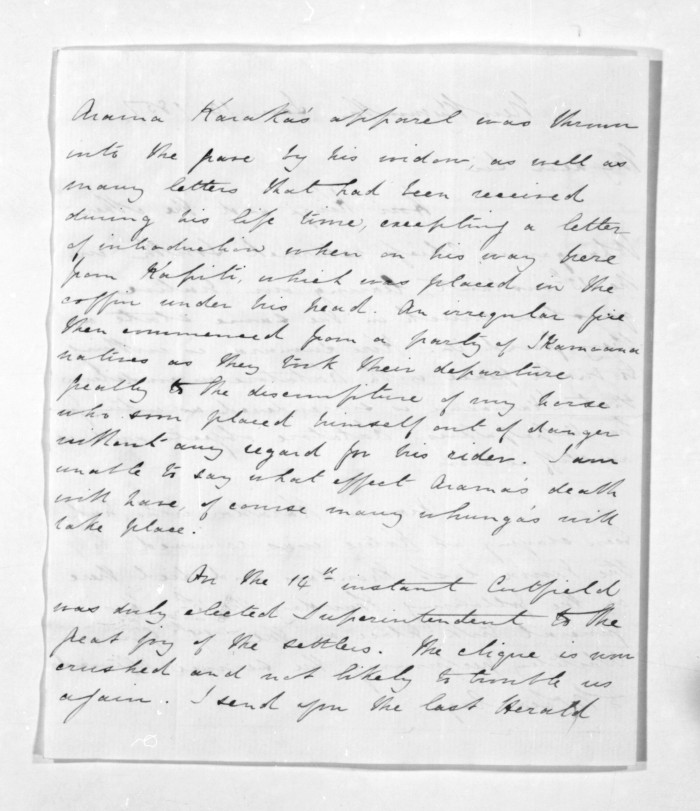 Arama Karaka's apparel was thrown
into the pave by his widow, as well as
many letters that had been received
during his life time, excepting a letter
of introduction when on his way here
from Kapiti, which was placed in the
coffin under his head. An irregular fire
then commenced from a party of Ikamoana
natives as they took their departure
greatly to the discomfiture of my horse
who soon placed himself out of danger
without any regard for his rider. I am
unable to say what effect Arama's death
will have, of course many uhunga's will
take place.
On the 14th instant Cutfield
was duly elected Superintendent to the
great joy of the settlers. The clique is now
crushed and not likely to trouble us
again. I send you the last Herald